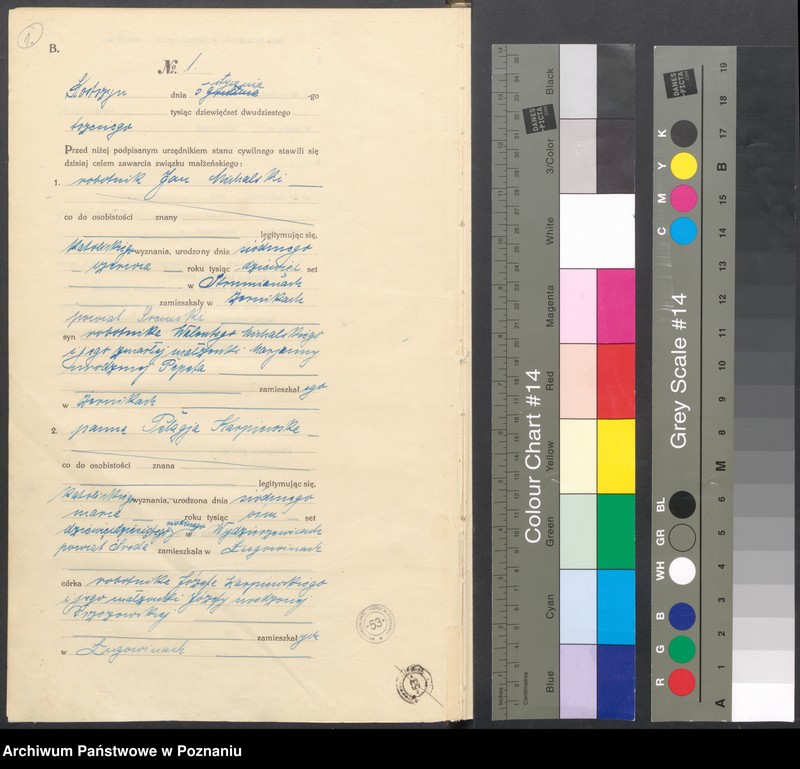 1.
B.
№. 1
Kostrzyn dnia 5 stycznia -go
tysiąc dziewięćset dwudziestego
trzeciego
Przed niżej podpisanym urzędnikiem stanu cywilnego stawili się
dzisiaj celem zawarcia związku małżeńskiego:
1. robotnik Jan Michalski
co do osobistości znany
legitymując się,
katolickiego wyznania, urodzony dnia siódmego
czerwca roku tysiąc dziewięć set
w Strumianach
zamieszkały w Żernikach
powiat
syn robotnika Walentego Michalskiego
i jego zmarłej małżonki Marjanny
urodzonej Pepeta
zamieszkałego
w Żernikach
2. panna Pelagja Karpiewska
co do osobistości znana
legitymując się,
katolickiego wyznania, urodzona dnia siódmego
marca roku tysiąc ośm set
dziewięćdziesiątego ósmego w
powiat Środa zamieszkała w Ługowinach
córka robotnika Józefa Karpiewskiego
i jego małżonki Józefy urodzonej
Brzozowskiej
zamieszkałych
w Ługowinach
53
Colour Chart #14
Black
3/Color
White
Magenta
Red
Yellow
Green
Cyan
Blue
Inches
Centimetres
DANES
PICTA
.COM
Grey Scale #14
DANES
PICTA
.COM
K
Y
M
C
BL
GR
WH
B
G
R
19
18
17
B
15
14
13
12
11
10
9
8
M
6
5
4
3
2
1
A
Archiwum Państwowe w Poznaniu